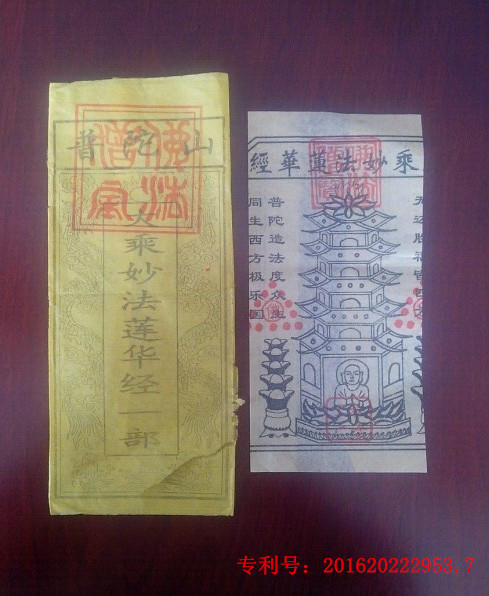 普陀山
大乘妙法莲华经一部
乘妙法蓮華經
普陀造法度众生
同生西方极乐国
专利号：201620222953.7